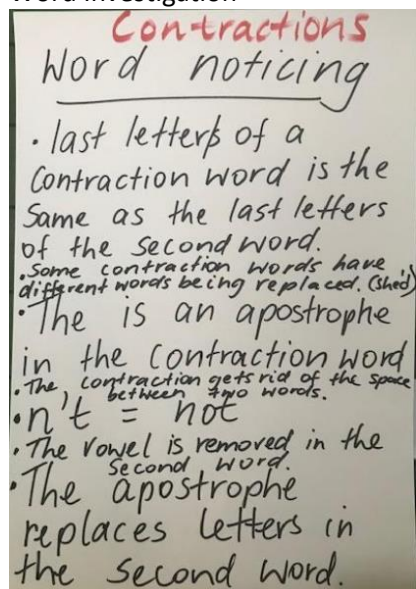 Contractions
Word noticing
• last letters of a
Contraction word is the
Same as the last letters
of the second word.
• Some contraction words have
different words being replaced. (she'd)
• The is an apostrophe
in the contraction word
• The contraction gets rid of the space
between two words.
• n't = not
• The vowel is removed in the
second word.
• The apostrophe
replaces letters in
the second word.